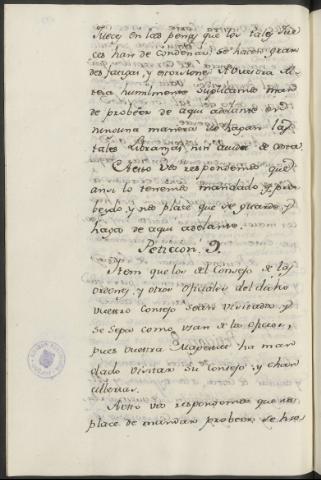 Jueces en las penas que los tales Jue
ces han de condenar, se hacen gran
des fatigas, y estorsiones. A Vuestra Al
teza humilmente suplicamos man
de probeer de aqui adelante en
ninguna manera se hagan las
tales Libranzas, nin ayudas de costa.
A esto vos respondemos que
ansi lo tenemos mandado, y pro
beydo, y nos place que se guarde, y
haga de aqui adelante.
Peticion 9.
Item que los del Consejo de las
ordenes, y otros oficiales del dicho
vuestro Consejo sean visitados, y
se sepa como usan de los oficios,
pues vuestra Magestad ha man
dado visitar su Consejo, y chan
cillerias.
A esto vos respondemos que nos
place de mandar probeer, se haga